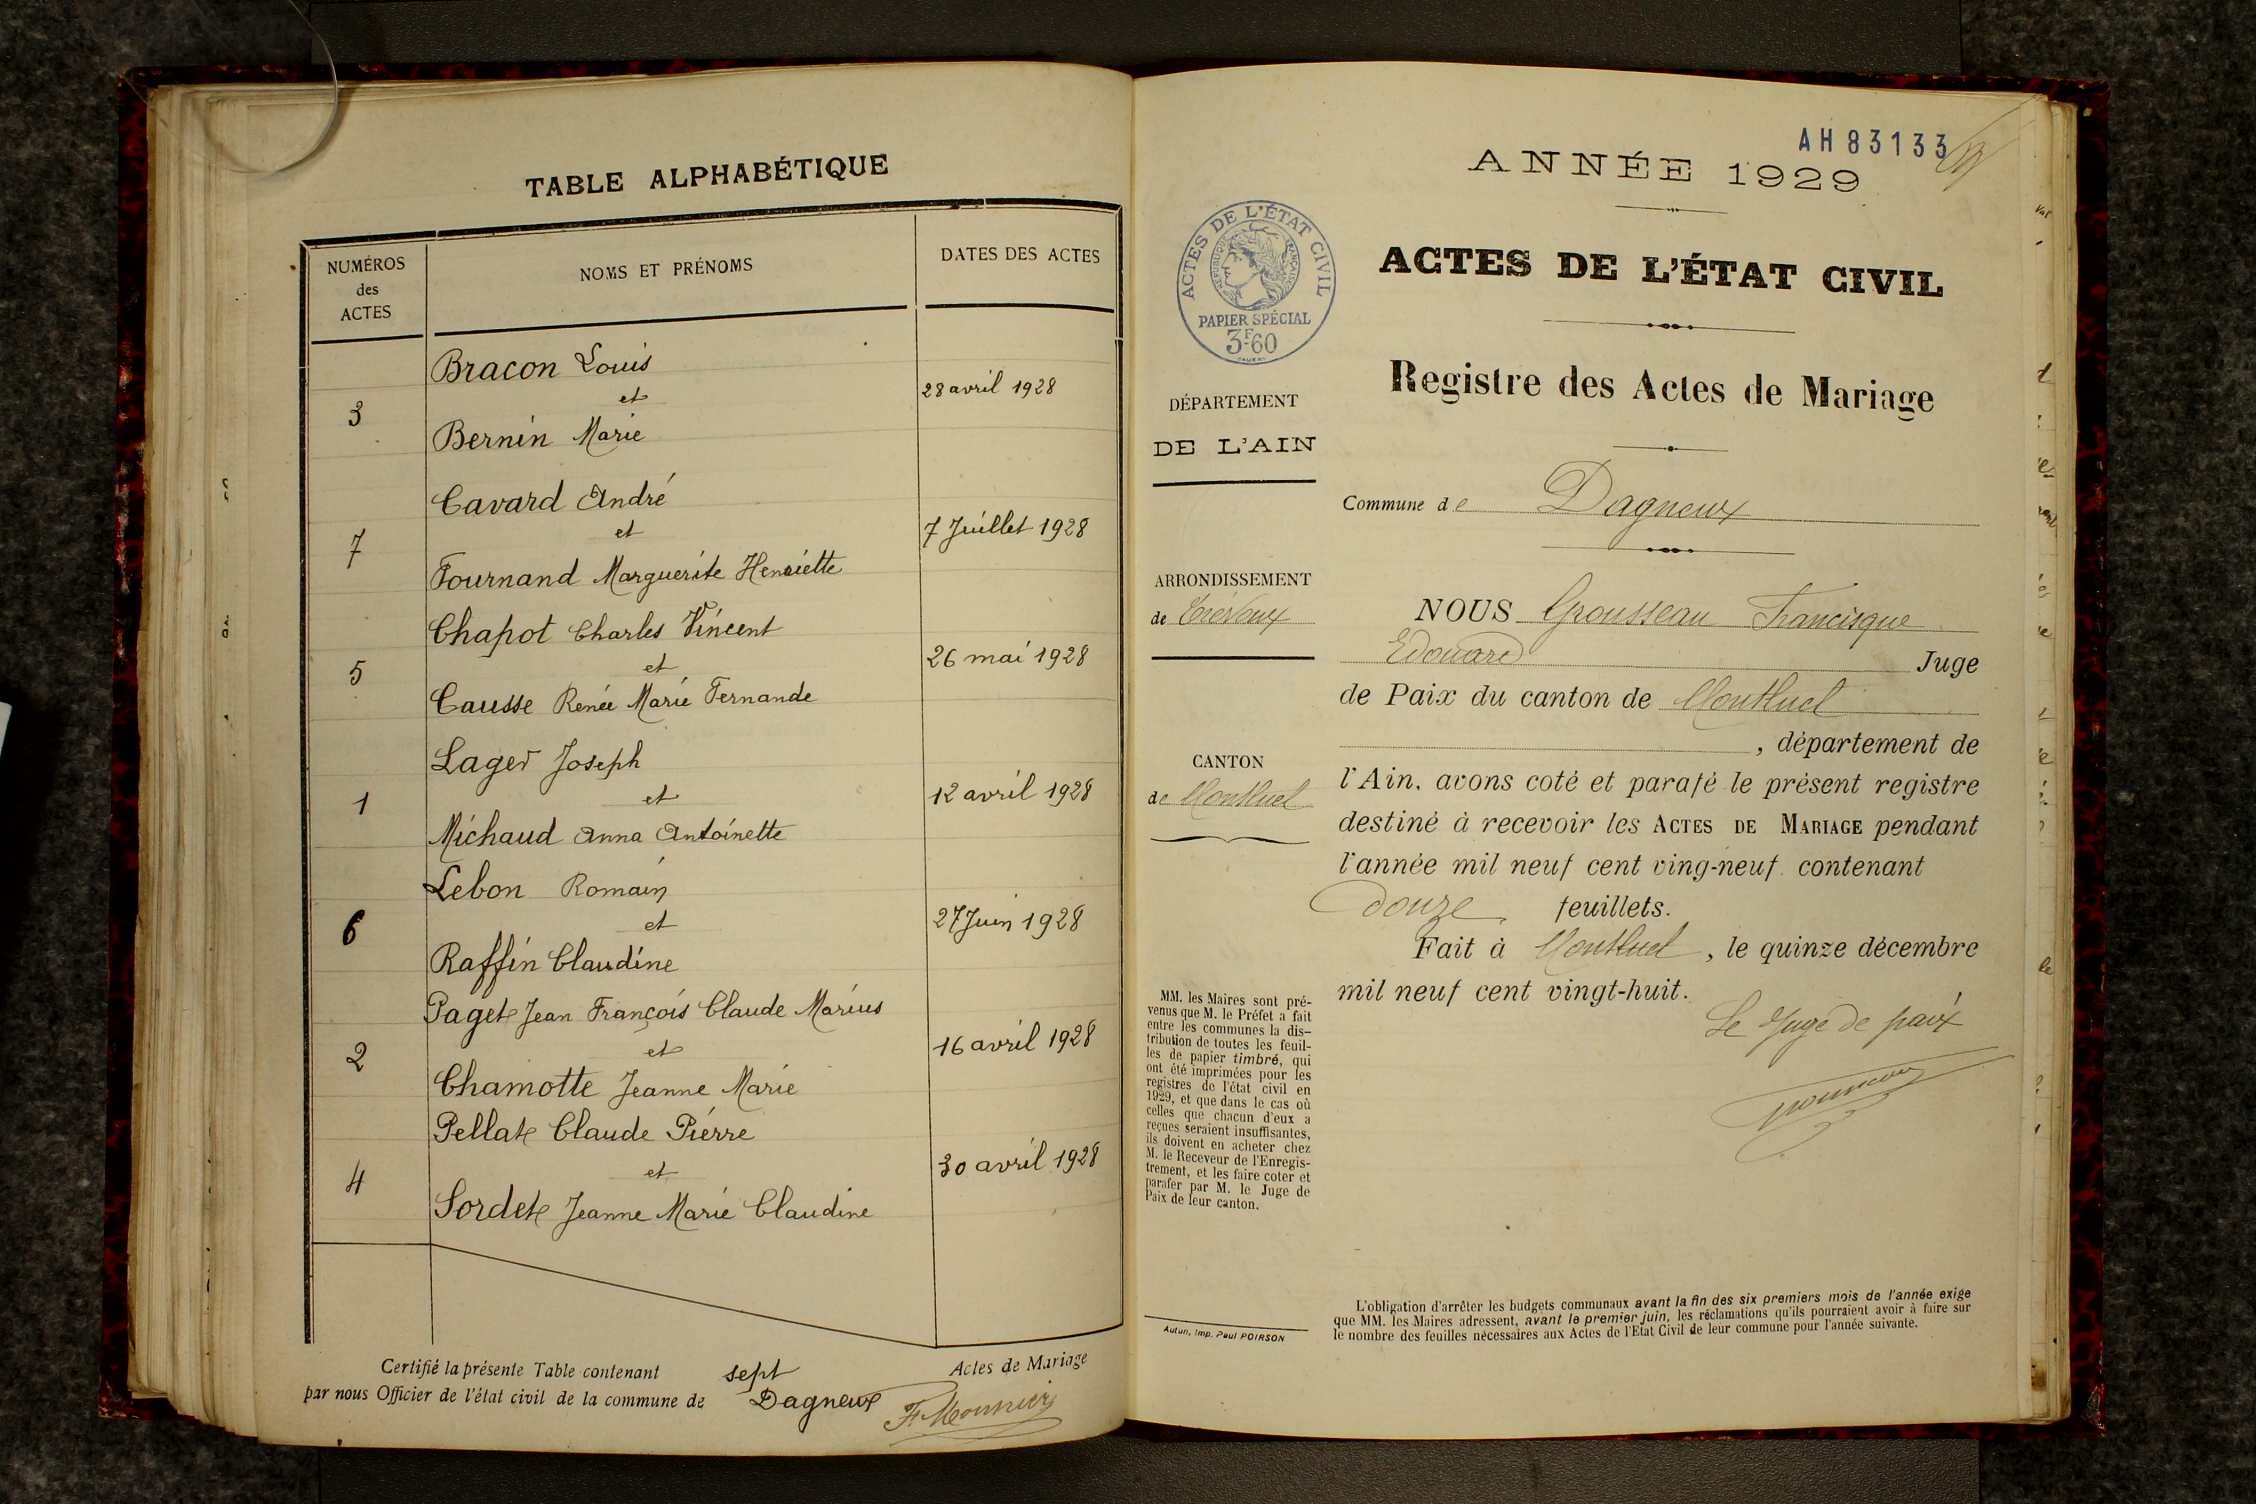 TABLE ALPHABÉTIQUE
NUMÉROS
des
ACTES
NOMS ET PRÉNOMS
DATES DES ACTES
Bracon Louis
3 et 28 avril 1928
Bernin Marie
Cavard André
7 et 7 Juillet 1928
Fournand Marguerite Henriette
Chapot Charles Vincent
5 et 26 mai 1928
Causse Renée Marie Fernande
Lager Joseph
1 et 12 avril 1928
Michaud Anna Antoinette
Lebon Romain
6 et 27 Juin 1928
Raffin Claudine
Paget Jean François Claude Marius
2 et 16 avril 1928
Chamotte Jeanne Marie
Pellat Claude Pierre
4 et 30 avril 1928
Sordet Jeanne Marie Claudine
Certifié la présente Table contenant sept Actes de Mariage
par nous Officier de l'état civil de la commune de Dagneux
AH 83133
ANNÉE 1929
ACTES DE L'ÉTAT CIVIL
RÉPUBLIQUE FRANÇAISE
PAPIER SPÉCIAL
3F60
ACTES DE L'ÉTAT CIVIL
Registre des Actes de Mariage
DÉPARTEMENT
DE L'AIN
Commune de Dagneux
ARRONDISSEMENT
de Trévoux
CANTON
de Montluel
NOUS Grousseau Francisque
Edouard Juge
de Paix du canton de Montluel
, département de
l'Ain, avons coté et parafé le présent registre
destiné à recevoir les ACTES DE MARIAGE pendant
l'année mil neuf cent ving-neuf contenant
douze feuillets.
Fait à Montluel, le quinze décembre
mil neuf cent vingt-huit.
Le Juge de paix
MM. les Maires sont pré-
venus que M. le Préfet a fait
entre les communes la dis-
tribution de toutes les feuil-
les de papier timbré, qui
ont été imprimées pour les
registres de l'état civil en
1929, et que dans le cas où
celles que chacun d'eux a
reçues seraient insuffisantes,
ils doivent en acheter chez
M. le Receveur de l'Enregis-
trement, et les faire coter et
parafer par M. le Juge de
Paix de leur canton.
Autun, Imp. Paul POIRSON
L'obligation d'arrêter les budgets communaux avant la fin des six premiers mois de l'année exige
que MM. les Maires adressent, avant le premier juin, les réclamations qu'ils pourraient avoir à faire sur
le nombre des feuilles nécessaires aux Actes de l'Etat Civil de leur commune pour l'année suivante.